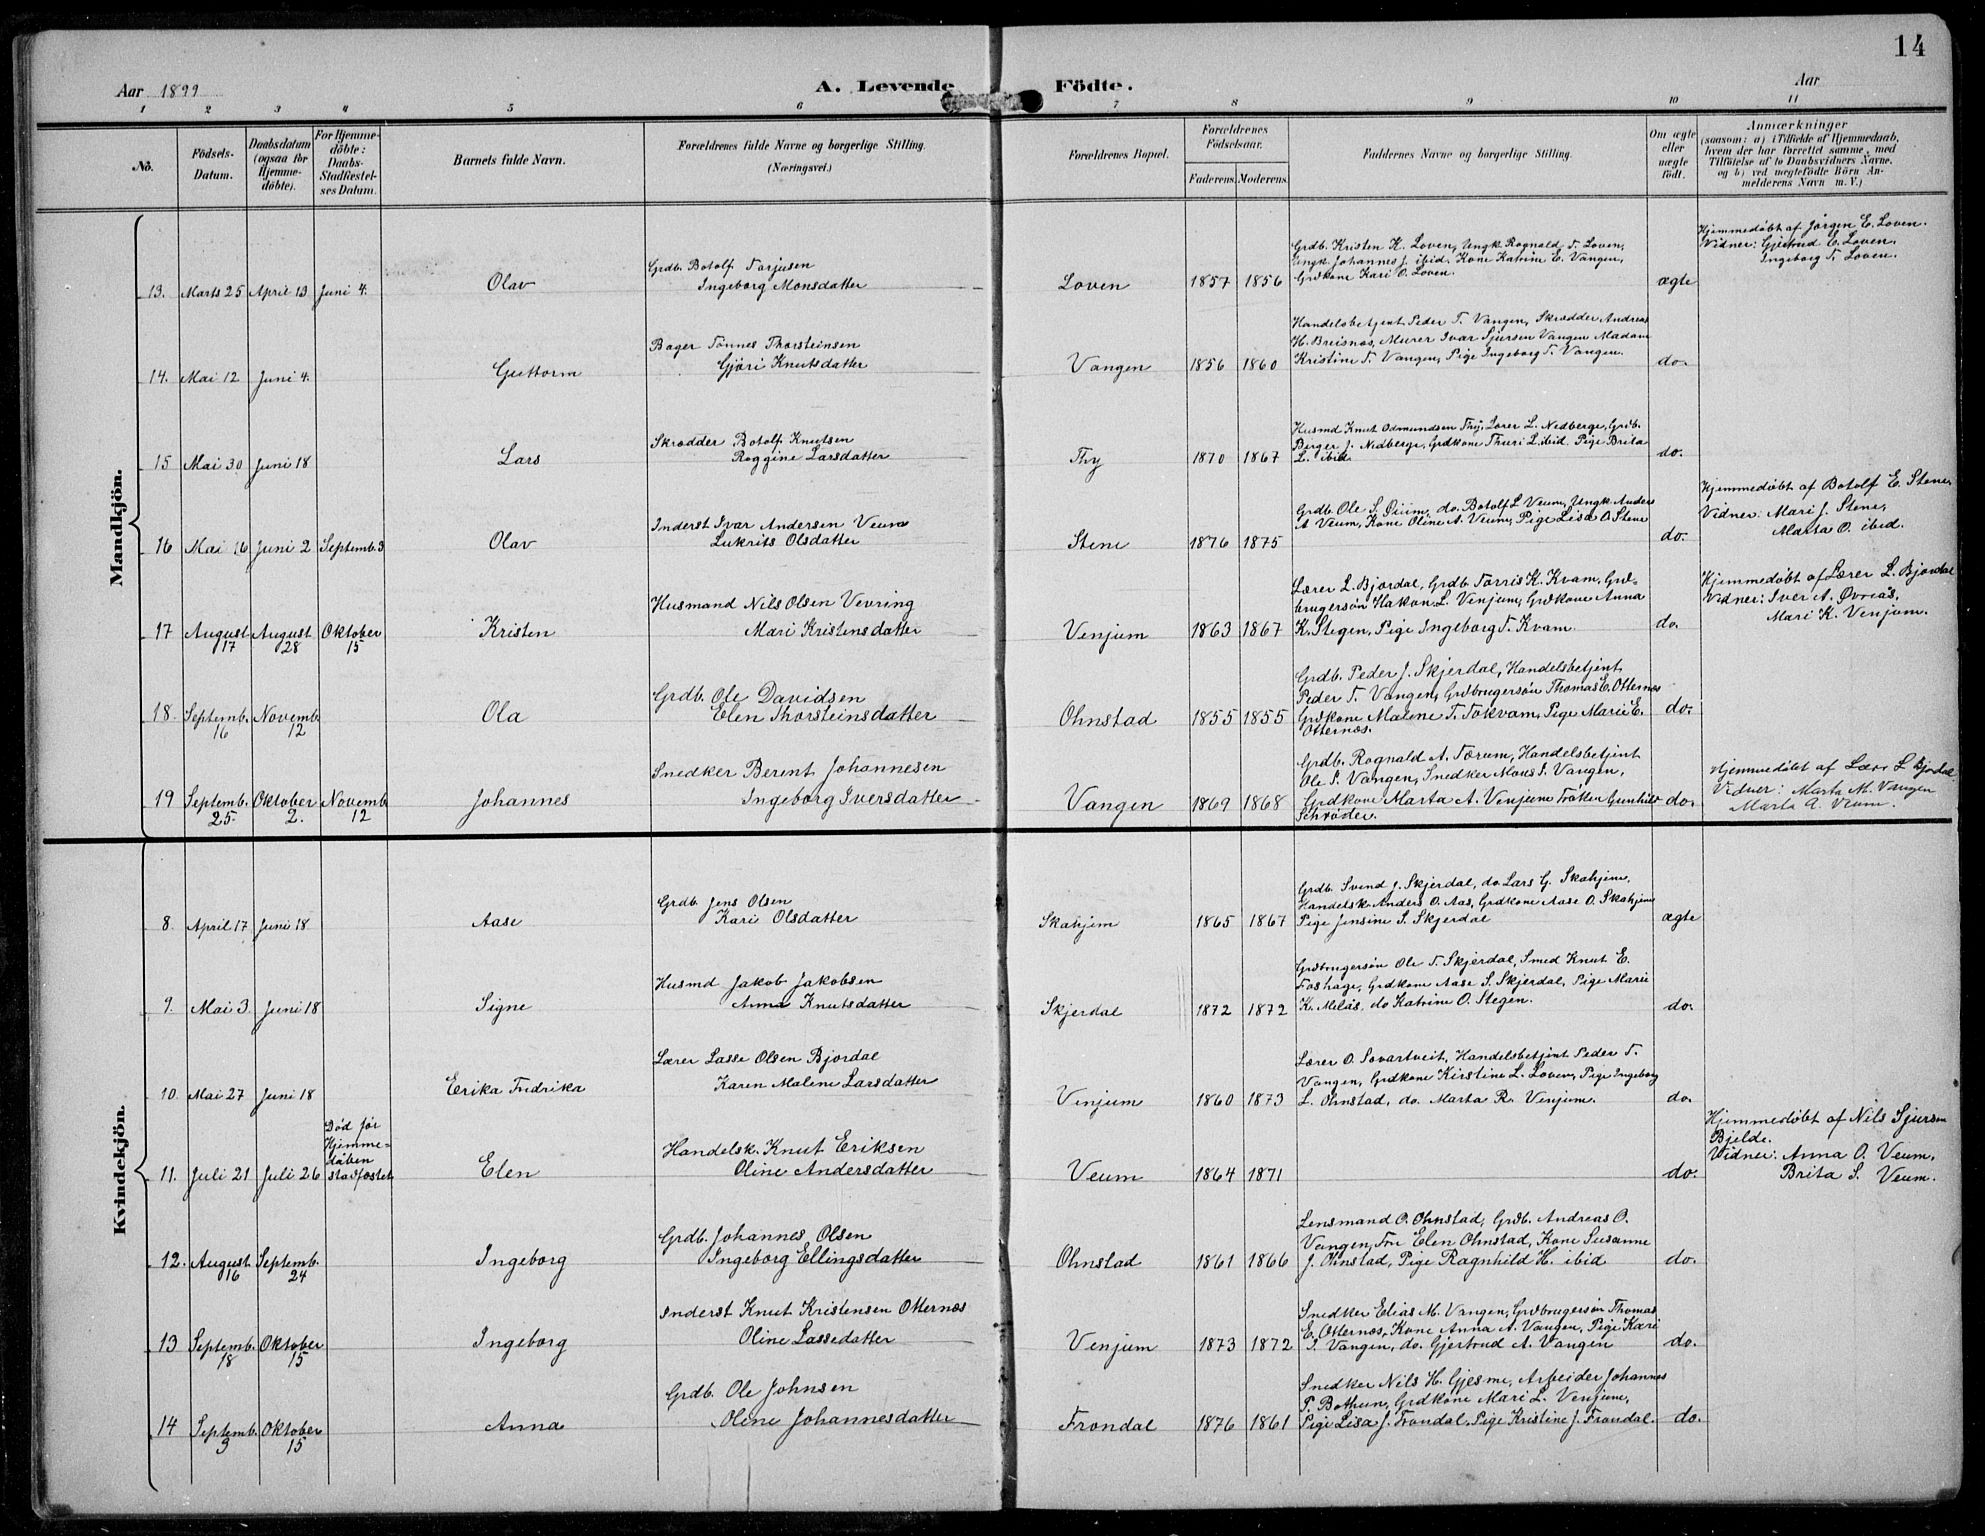 14
Aar 1899
A. Levende Födte.
Aar
1 2 3 4 5 6 7 8 9 10 11
No.
Födsels-Datum.
Daabsdatum (ogsaa for Hjemme-döbte).
For Hjemme-döbte: Daabs-Stadfæstel-ses Datum.
Barnets fulde Navn.
Forældrenes fulde Navne og borgerlige Stilling. (Næringsvei.)
Forældrenes Bopæl.
Forældrenes Födselsaar.
Faderens. Moderens.
Faddernes Navne og borgerlige Stilling.
Om ægte eller uægte födt.
Anmærkninger
(saasom: a) i Tilfælde af Hjemmedaab, hvem der har forrettet samme, med Tilföielse af to Daabsvidners Navne, og b) ved uægtefödte Börn An-melderens Navn m. V.)
Mandkjön.
13. Marts 25 April 13 Juni 4. Olav
Grdb. Botolf Torjusen
Ingeborg Monsdatter
Loven 1857 1856
Grdb. Kristen K. Loven, Ungk. Rognald T. Loven,
Ungk. Johannes J. ibid. Kone Katrine E. Vangen,
Grdkone Kari O. Loven.
ægte
Hjemmedøbt af Jörgen E. Loven.
Vidner: Gjertrud E. Loven.
Ingeborg T. Loven.
14. Mai 12 Juni 4. Guttorm
Bager Tönnes Thorsteinsen
Gjöri Knutsdatter
Vangen 1856 1860
Handelsbetjent Peder T. Vangen, Skrædder Andreas
H. Breisnes, Murer Ivar Sjursen Vangen Madam
Kristine T. Vangen, Pige Ingeborg T. Vangen.
do.
15 Mai 30 Juni 18 Lars
Skrædder Botolf Knutsen
Roggine Larsdatter
Thy 1870 1867
Husmd Knut Odmundsen Thy, Lærer L. Nedberge, Grdb.
Birger J. Nedberge, Grdkone Thuri L. ibid. Pige Brita
L. ibid.
do.
16 Mai 16 Juni 2 Septemb. 3 Olav
Inderst Ivar Andersen Veum
Lukrits Olsdatter
Stene 1876 1875
Grdb. Ole S. Öium, do. Botolf L Veum, Ungk. Anders
A Veum, Kone Oline A. Veum, Pige Lisa O. Stene
do.
Hjemmedøbt af Botolf E. Stene,
Vidner: Mari J. Stene,
Marta O. ibid.
17 August 17 August 28 Oktober 15 Kristen
Husmand Nils Olsen Vevring
Mari Kristensdatter
Venjum 1863 1867
Lærer L. Bjordal, Grdb. Torris K. Kvam, Grd-
brugersön Hakon L. Venjum, Grdkone Anna
K. Stegen, Pige Ingeborg T. Kvam.
do.
Hjemmedøbt af Lærer L. Bjordal
Vidner: Iver A. Øvreås,
Mari K. Venjum.
18. Septemb. 16 Novemb. 12 Ola
Grdb. Ole Davidsen
Elen Thorsteinsdatter
Ohnstad 1855 1855
Grdb. Peder J. Skjerdal, Handelsbetjent
Peder T. Vangen, Grdbrugersön Thomas E. Otternes
Grdkone Malene T. Tokvam, Pige Marie E.
Otternæs.
do.
19 Septemb. 25. Oktober 2. Novemb 12 Johannes
Snedker Berent Johannesen
Ingeborg Iversdatter
Vangen 1869 1868
Grdb. Rognald A. Tærum, Handelsbetjent
Ole P. Vangen, Snedker Mons P. Vangen,
Grdkone Marta A. Venjum Fröken Gunhild
Schrøder.
do.
Hjemmedøbt af Lærer L Bjordal
Vidner: Marta M. Vangen
Marta A. Veum.
Kvindekjön.
8. April 17 Juni 18 Aase
Grdb. Jens Olsen
Kari Olsdatter
Skahjem 1865 1867
Grdb. Svend J. Skjerdal, do Lars G. Skahjem,
Handelsk. Anders O. Aas, Grdkone Aase O. Skahjem
Pige Jensine S. Skjerdal
ægte
9. Mai 3 Juni 18 Signe
Husmd Jakob Jakobsen
Anna Knutsdatter
Skjerdal 1872 1872
Grdbrugersön Ole T. Skjerdal, Smed Knut E.
Foshage, Grdkone Aase S. Skjerdal, Pige Marie
K. Melås, do Katrine O. Stegen.
do.
10. Mai 27 Juni 18 Erika Fredrika
Lærer Lasse Olsen Bjordal
Karen Malene Larsdatter
Venjum 1860 1873
Lærer O. Sovartveit, Handelsbetjent Peder T.
Vangen, Grdkone Kirstine L. Loven, Pige Ingeborg
L. Ohnstad, do. Marta R. Venjum.
do.
11. Juli 21 Juli 26
Død før
Hjemme-
dåben
stadfæstet
Elen
Handelsk. Knut Eriksen
Oline Andersdatter
Veum 1864 1871
do.
Hjemmedøbt af Nils Sjursen
Bjelde.
Vidner: Anna O. Veum,
Brita S. Veum.
12. August 16 Septemb. 24 Ingeborg
Grdb. Johannes Olsen
Ingeborg Ellingsdatter
Ohnstad 1861 1866
Lensmand O. Ohnstad, Grdb. Andreas O.
Vangen, Fru Elen Ohnstad, Kone Susanne
J. Ohnstad, Pige Ragnhild H. ibid
do.
13 Septemb. 18 Oktober 15 Ingeborg
Inderst Knut Kristensen Otternæs
Oline Lassedatter
Venjum 1873 1872
Snedker Elias M. Vangen, Grdbrugersön Thomas
E. Otternæs, Kone Anna A. Vangen, Pige Kari
I. Vangen, do. Gjertrud A. Vangen
do.
14 Septemb. 9 Oktober 15 Anna
Grdb. Ole Johnsen
Oline Johannesdatter
Frondal 1876 1861
Snedker Nils H. Gjesme, Arbeider Johannes
P. Bothun, Grdkone Mari L. Venjum,
Pige Lisa J. Frondal, Pige Kristine J. Frondal.
do.